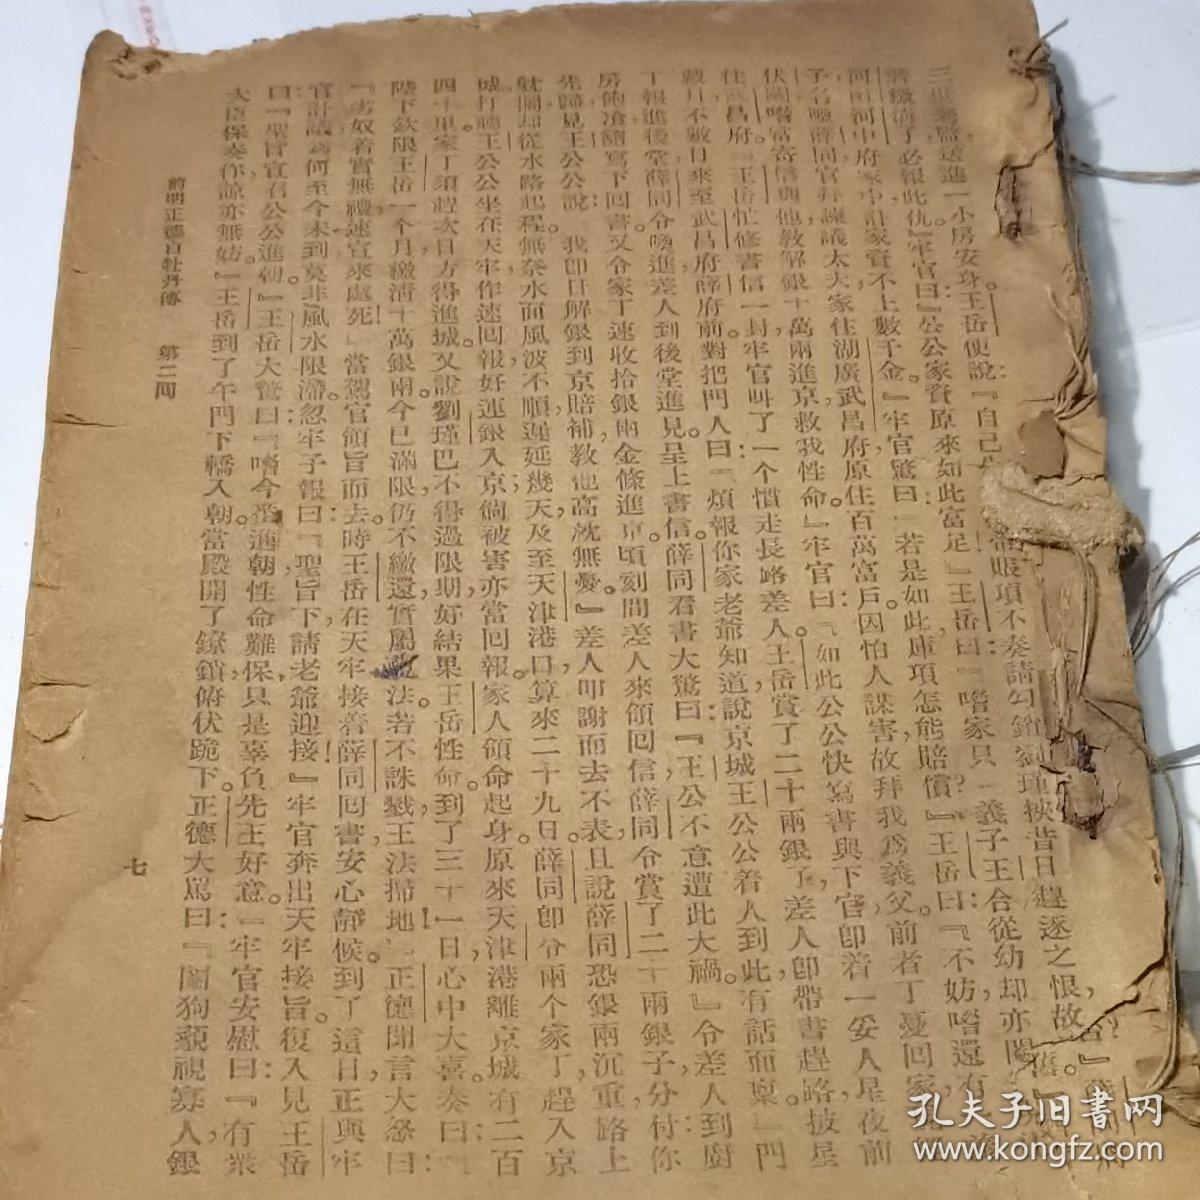 賬項不奏請勾銷劉瑾挾昔日趕逐之恨故
三 監送進一小房安身王岳便說『自己
著繳清了必報此仇』牢官曰『公公家資原來如此富足』王岳曰『喒家只一義子王合從幼却亦閹
河南河中府家中計家資不上數千金』牢官驚曰『若是如此庫項怎能賠償』王岳曰『不妨喒還有
子名喚薛同官拜諫議太夫家住湖廣武昌府原住百萬富戶因怕人謀害故拜我爲義父前者丁憂回家
伏闕喒當寄信與他教解銀十萬兩進京救我性命』牢官曰『如此公公快寫書與下官卽着一妥人星夜前
往武昌府』王岳忙修書信一封牢官叫了一个慣走長路差人王岳賞了二十兩銀了差人卽帶書趕路披星
戴月不數日來至武昌府薛府前對把門人曰『煩報你家老爺知道說京城王公公着人到此有話面稟』門
丁報進後堂薛同令喚進差人到後堂進見呈上書信薛同看書大驚曰『王公不意遭此大禍』令差人到廚
房飽飡隨寫下回書又令家丁速收拾銀兩金條進京頃刻間差人來領囘信薛同令賞了二十兩銀子分付你
先歸見王公公說我卽日解銀到京賠補教他高枕無憂』差人叩謝而去不表且說薛同恐銀兩沉重路上
躭擱却從水路起程無奈水面風波不順遲延幾天及至天津港口算來二十九日薛同卽分兩个家丁趕入京
城打聽王公公坐在天牢作速囘報好運銀入京倘被害亦當囘報家人領命起身原來天津港離京城有二百
四十里家丁須趕次日方得進城又說劉瑾巴不得過限期好結果王岳性命到了三十一日心中大喜奏曰『
陛下欽限王岳一个月繳清十萬銀兩今已滿限仍不繳還實屬 法若不誅戮王法掃地』正德聞言大怒曰
『 奴着實無禮速宣來處死』當駕官領旨而去時王岳在天牢接着薛同囘書安心靜候到了這日正與牢
官計議爲何至今未到莫非風水限滯忽牢子報曰『聖旨下請老爺迎接』牢官奔出天牢接旨復入見王岳
曰『聖旨宣召公公進朝』王岳大驚曰『喒今番進朝性命難保只是辜負先王好意』牢官安慰曰『有衆
大臣保奏你諒亦無妨』王岳到了午門下轎入朝當殿開了鐐鎖俯伏跪下正德大罵曰『閹狗藐視寡人銀
前明正德白牡丹傳 第二囘
七
孔夫子旧書网
www.kongfz.com